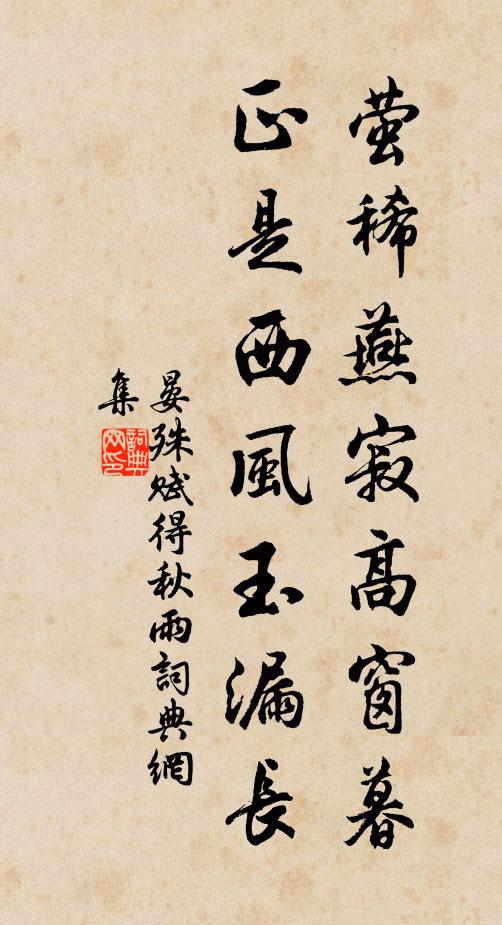 萤稀燕寂高窗暮
正是西風玉漏長
晏殊賦得秋雨詞典網
集
詞典網印